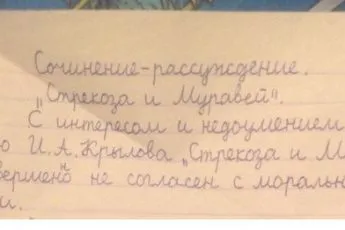 Сочинение-рассуждение.
„Стрекоза и Муравей".
С интересом и недоумением
ю И.А.Крылова „Стрекоза и М
вершенно не согласен с мораль
и.